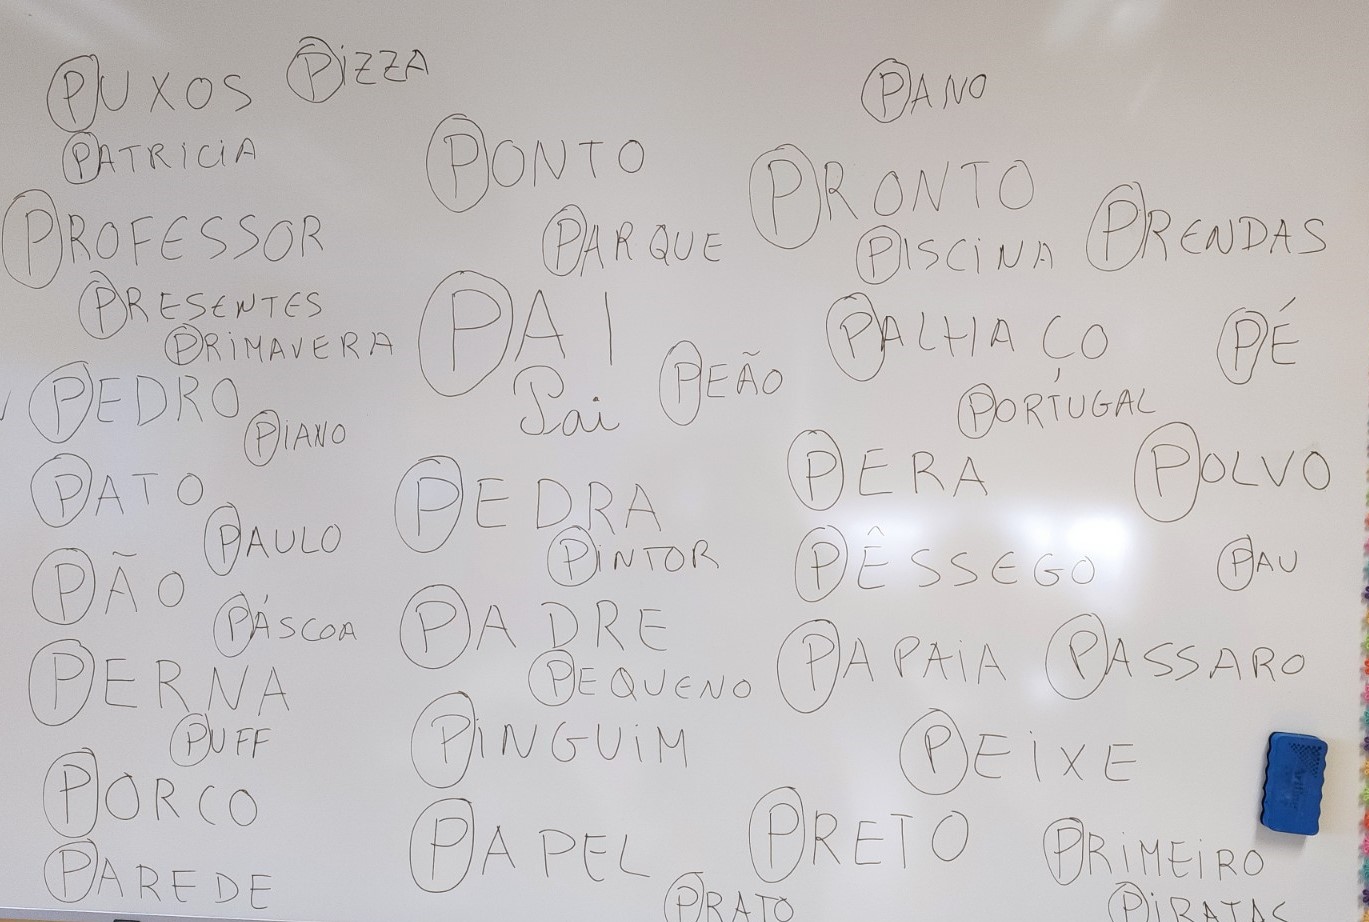 PUXOS
PIZZA
PATRICIA
PROFESSOR
PRESENTES
PRIMAVERA
PEDRO
PIANO
PATO
PAULO
PÃO
PÁSCOA
PERNA
PUFF
PORCO
PAREDE
PONTO
PARQUE
PAI
Pai
PEÃO
PEDRA
PINTOR
PADRE
PEQUENO
PINGUIM
PAPEL
PRATO
PANO
PRONTO
PISCINA
PRENDAS
PALHAÇO
PÉ
PORTUGAL
PERA
POLVO
PÊSSEGO
PAU
PAPAIA
PASSARO
PEIXE
PRETO
PRIMEIRO
PIRATAS